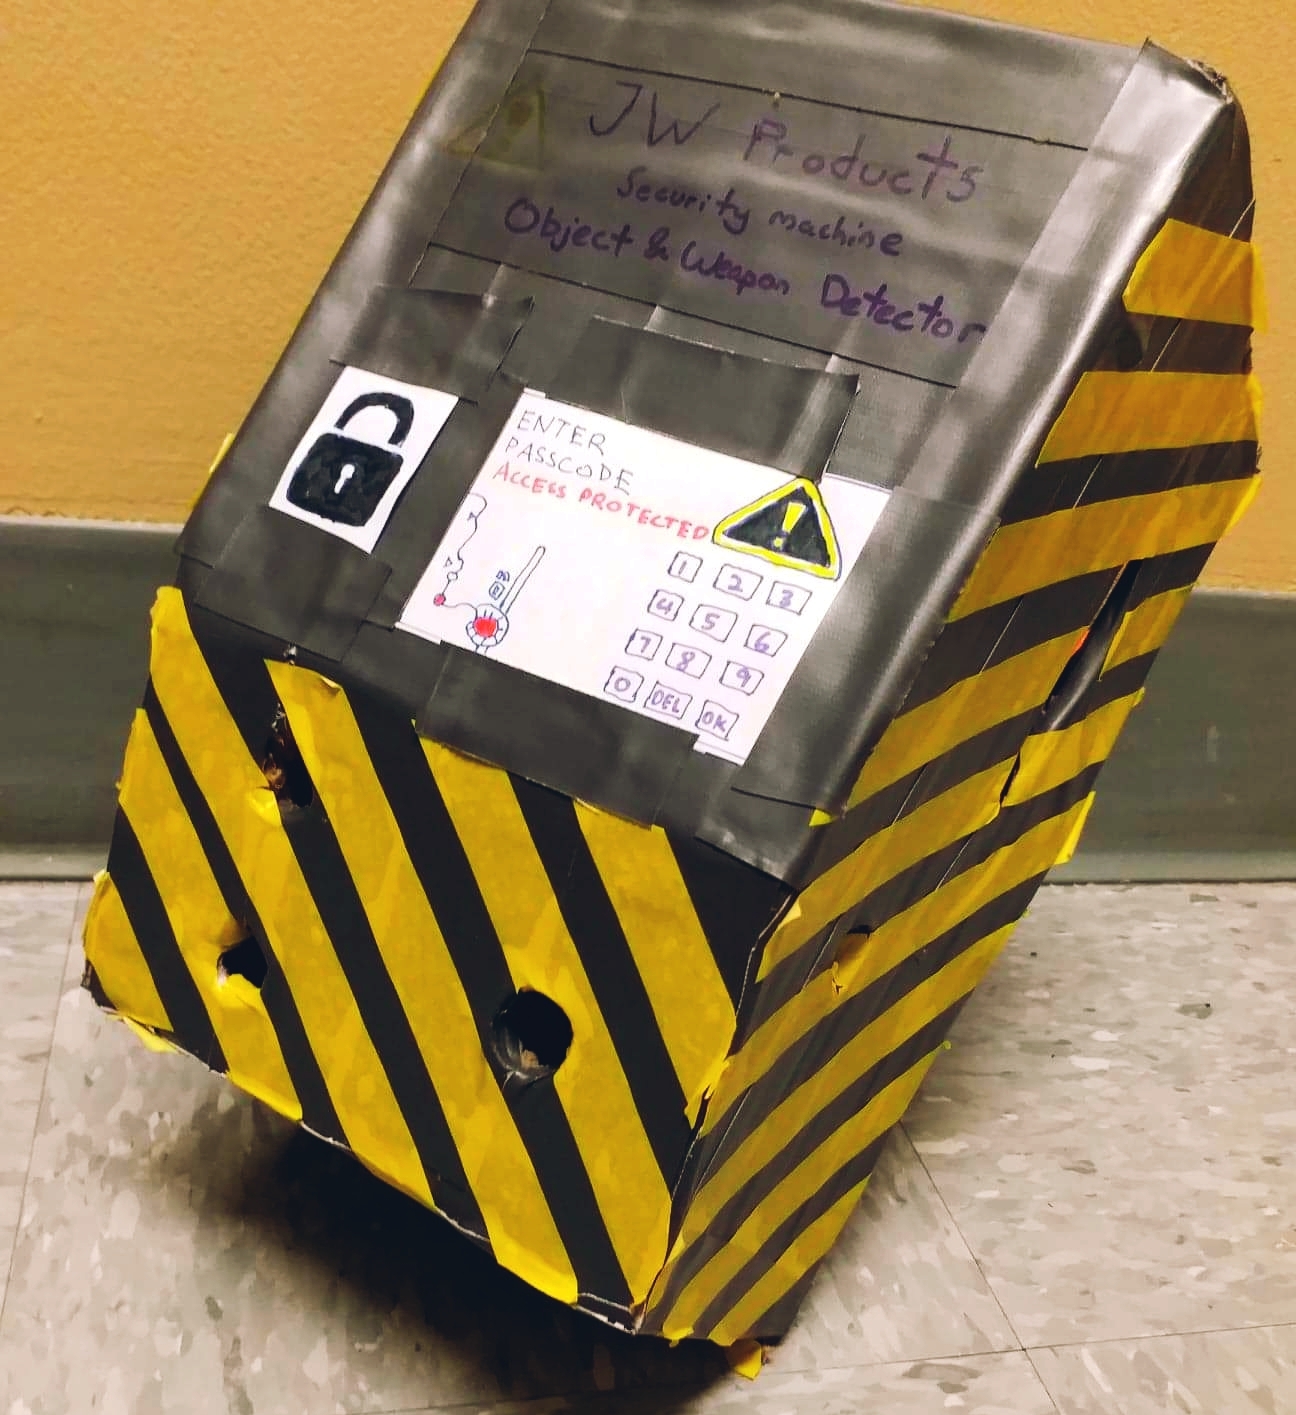 JW Products
Security machine
Object & Weapon Detector
ENTER
PASSCODE
ACCESS PROTECTED
!
1 2 3
4 5 6
7 8 9
0 DEL OK